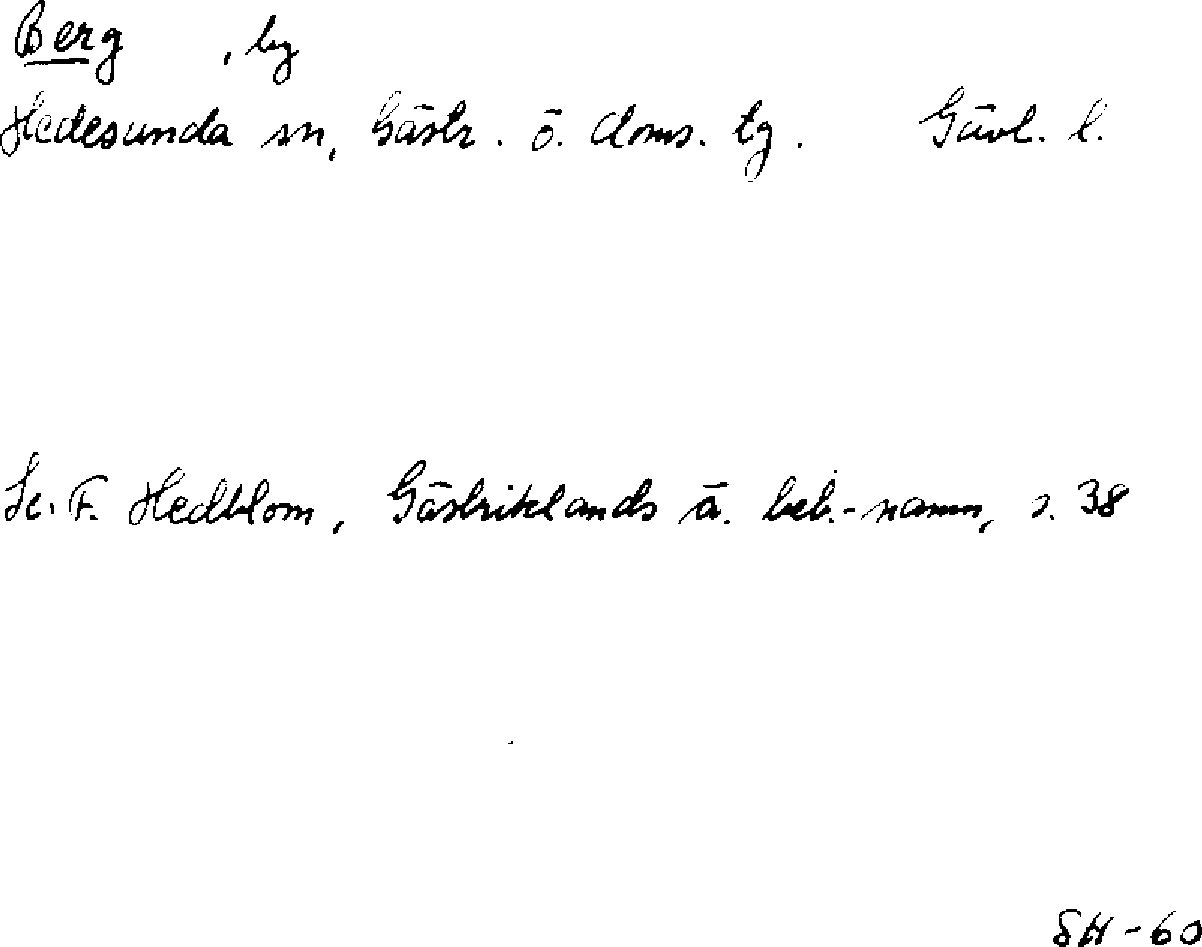 Berg , by
Hedesunda sn, Gästr. ö. doms. tg. Gävl. l.
Se. F. Hedblom, Gästriklands ä. beb.-namn, s. 38
SH-60